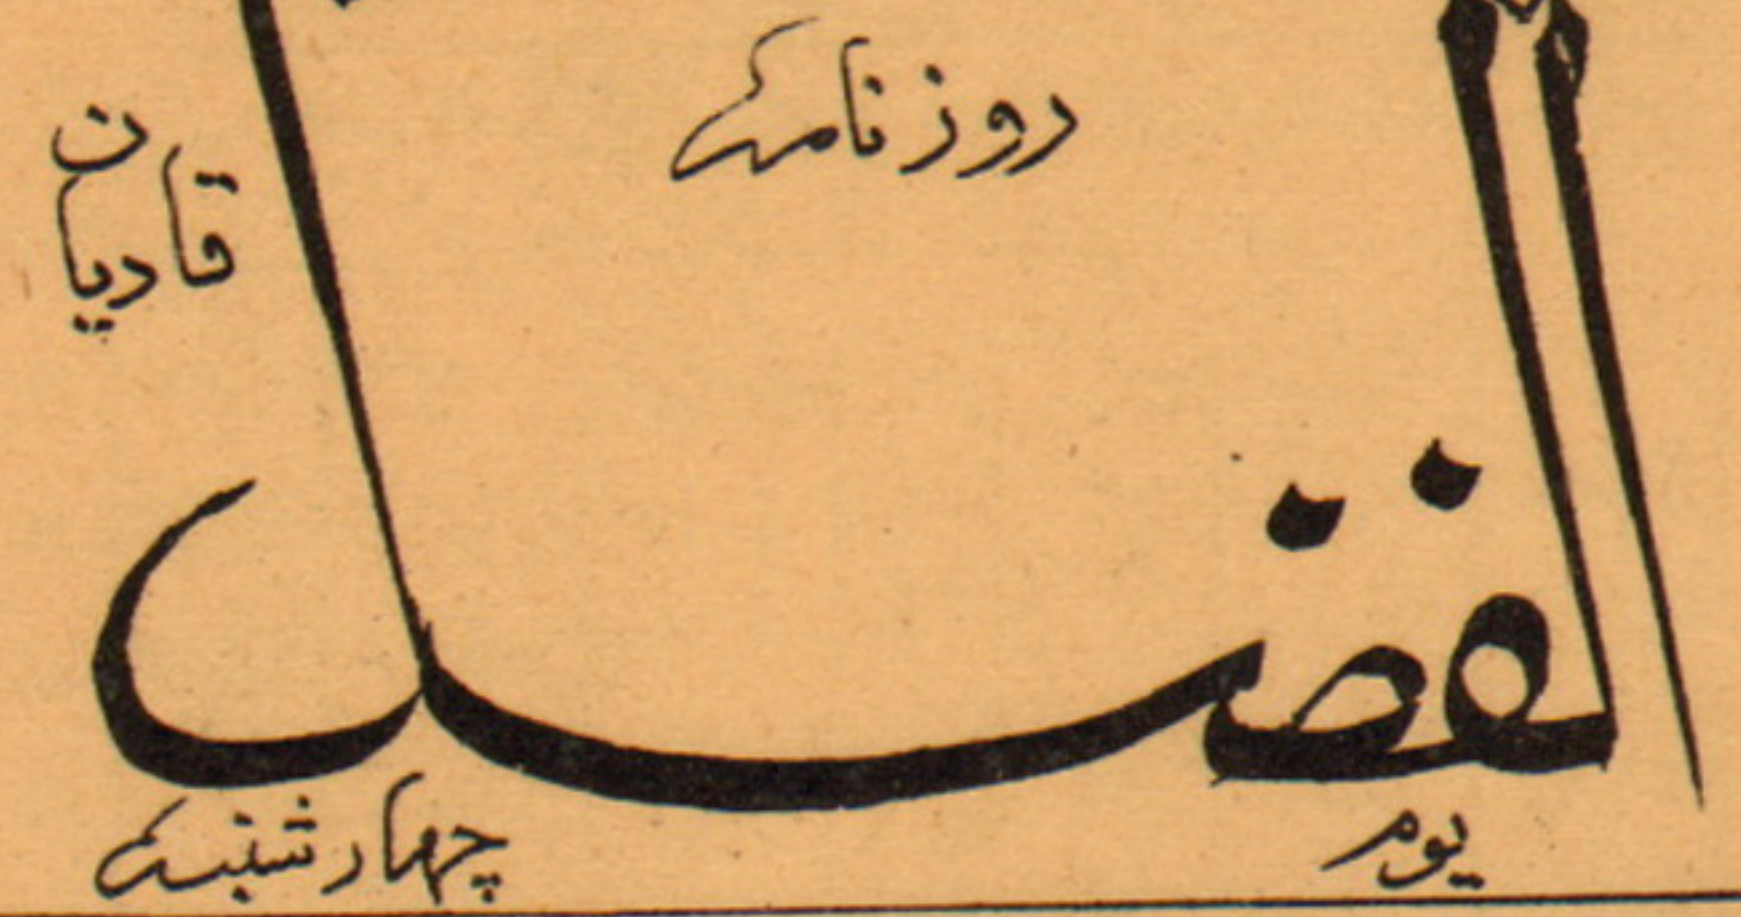 روزنامہ
قادیان
الفضل
یوم چہارشنبہ